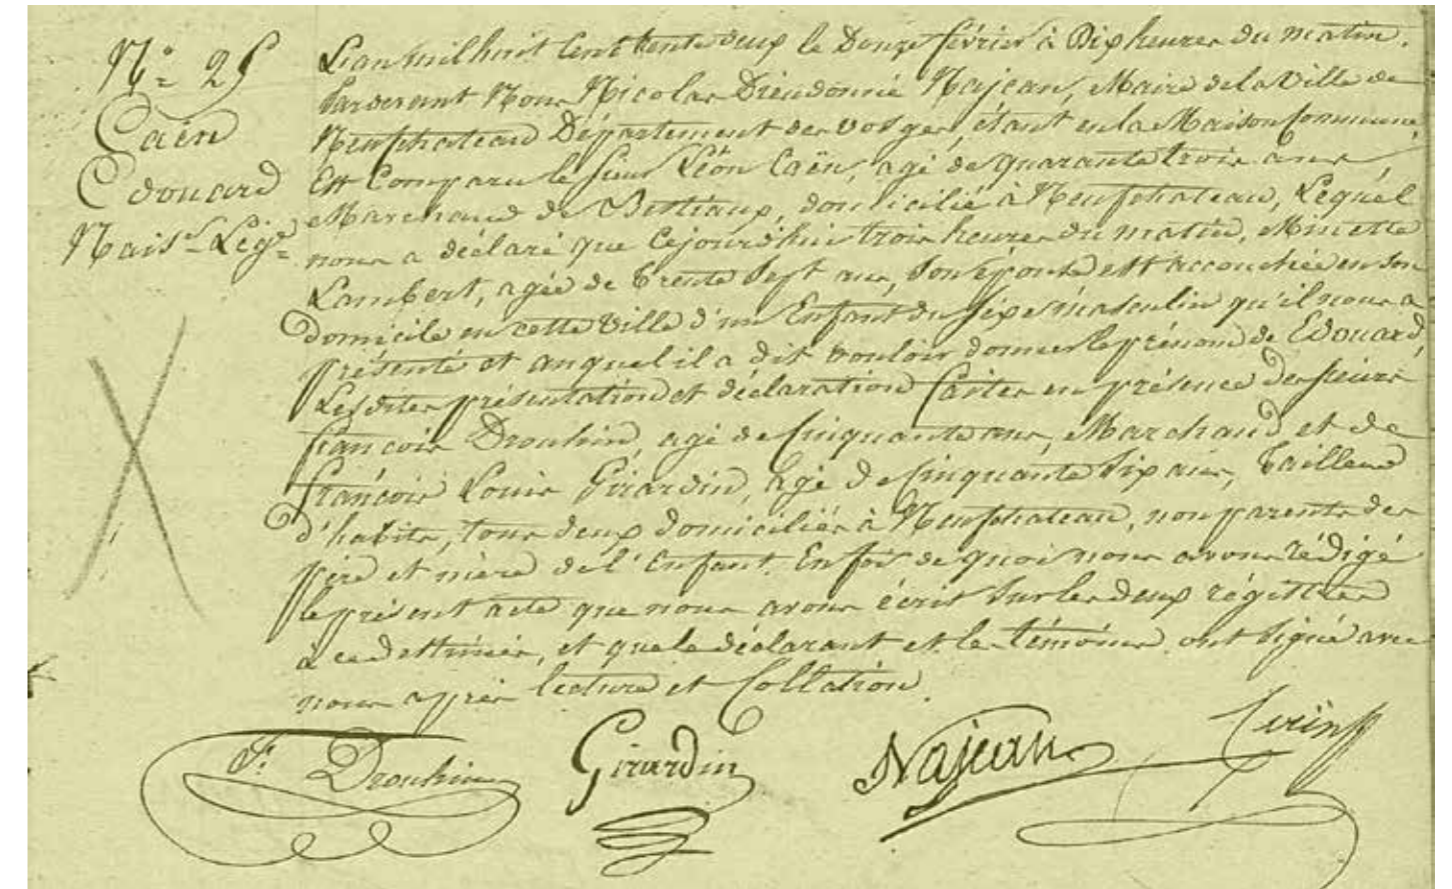 N.o 25
Caën
Edouard
Nais.ce Lég.e
L'an mil huit Cent trente deux le Douze février à Dix heures du matin,
Pardevant Nous Nicolas Dieudonné Najean, Maire de la Ville de
Neufchateau Département des vosges, étant en la Maison Commune,
Est Comparu le sieur Léon Caën, agé de quarante trois ans
Marchand de Bestiaux, domicilié à Neufchateau, Lequel
nous a déclaré que Cejourd'hui trois heures du matin, Minette
Lambert, agée de trente sept ans, son épouse est accouchée en son
domicile en cette Ville d'un Enfant du sexe masculin qu'il nous a
présenté et auquel il a dit vouloir donner le prénom de Edouard,
Lesdites présentation et déclaration faites en présence des sieurs
françois Drouhin, agé de Cinquante ans, Marchand et de
françois Louis Girardin, agé de Cinquante six ans, Tailleur
d'habits, tous deux domiciliés à Neufchateau, non parents des
père et mère de l'Enfant. En foi de quoi nous avons rédigé
le présent acte que nous avons écrit sur les deux régistres
à ce destinés, et que le déclarant et les témoins ont signé avec
nous après lecture et Collation.
f. Drouhin Girardin Najean